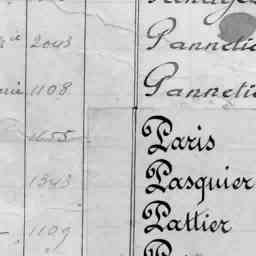 2043 Pannetie
1108 Pannetie
1655 Paris
1343 Pasquier
1109 Pattier